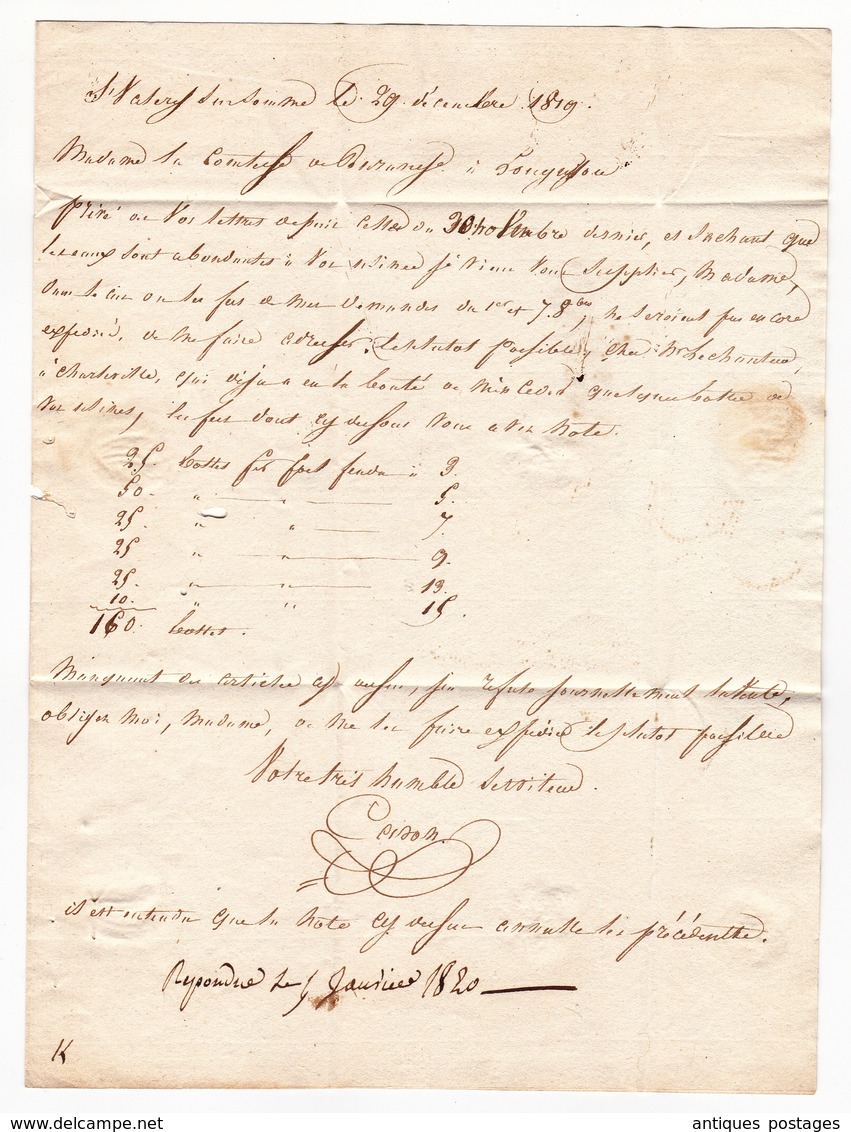 St Valery Sur Somme le 29 décembre 1819.
Madame la Comtesse de à Longuyon
Privé de Vos lettres depuis celle du 30 Novembre dernier, et Sachant que
les eaux sont abondantes à Vos usines je viens Vous Supplier, Madame,
Dans le cas ou les fers de mes demandes du 1er et 7. 8bre, ne seroient pas encore
expédiés, de me faire adresser, le plutot possible, chez Mr Lechanteur,
à Charleville, qui déja a eu la bonté de m'en céder quelques bottes de
Vos usines, les fers dont cy dessous Vous avez Note.
25. bottes fer fort fendu à 3.
50. " " 5.
25. " " 7.
25 " " 9.
25. " " 13.
10. " " 15
160. bottes.
Manquant des articles cy dessus, j'en refuse journellement la Vente,
obligez moi, Madame, de me les faire expédier le plutot possible
Votre très humble Serviteur.
Cerson.
il est entendu que la Note cy dessus annulle les précédentes.
Repondue Le 5 Janvier 1820
K
antiques postages